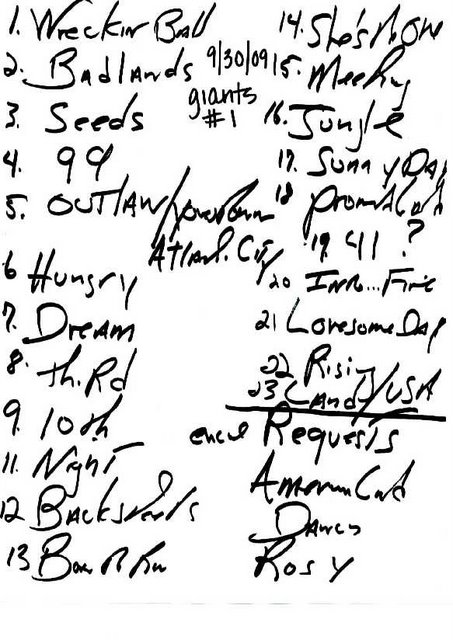 1. Wreckin Ball
2. Badlands
3. Seeds
4. 99
5. OUTLAW/
Atlant. City
6 Hungry
7. Dream
8. Th. Rd
9. 10th
11. Night
12 Backstreets
13 Born R Run
9/30/09
giants
#1
14. She's R ONE
15. Meeting
16. Jungle
17. Sunny Day
18 Promised Land
19. 41 ?
20 I'M ... Fire
21 Lonesome Day
22 Rising
23 Land/USA
Requests
American Land
Dancing
Rosy